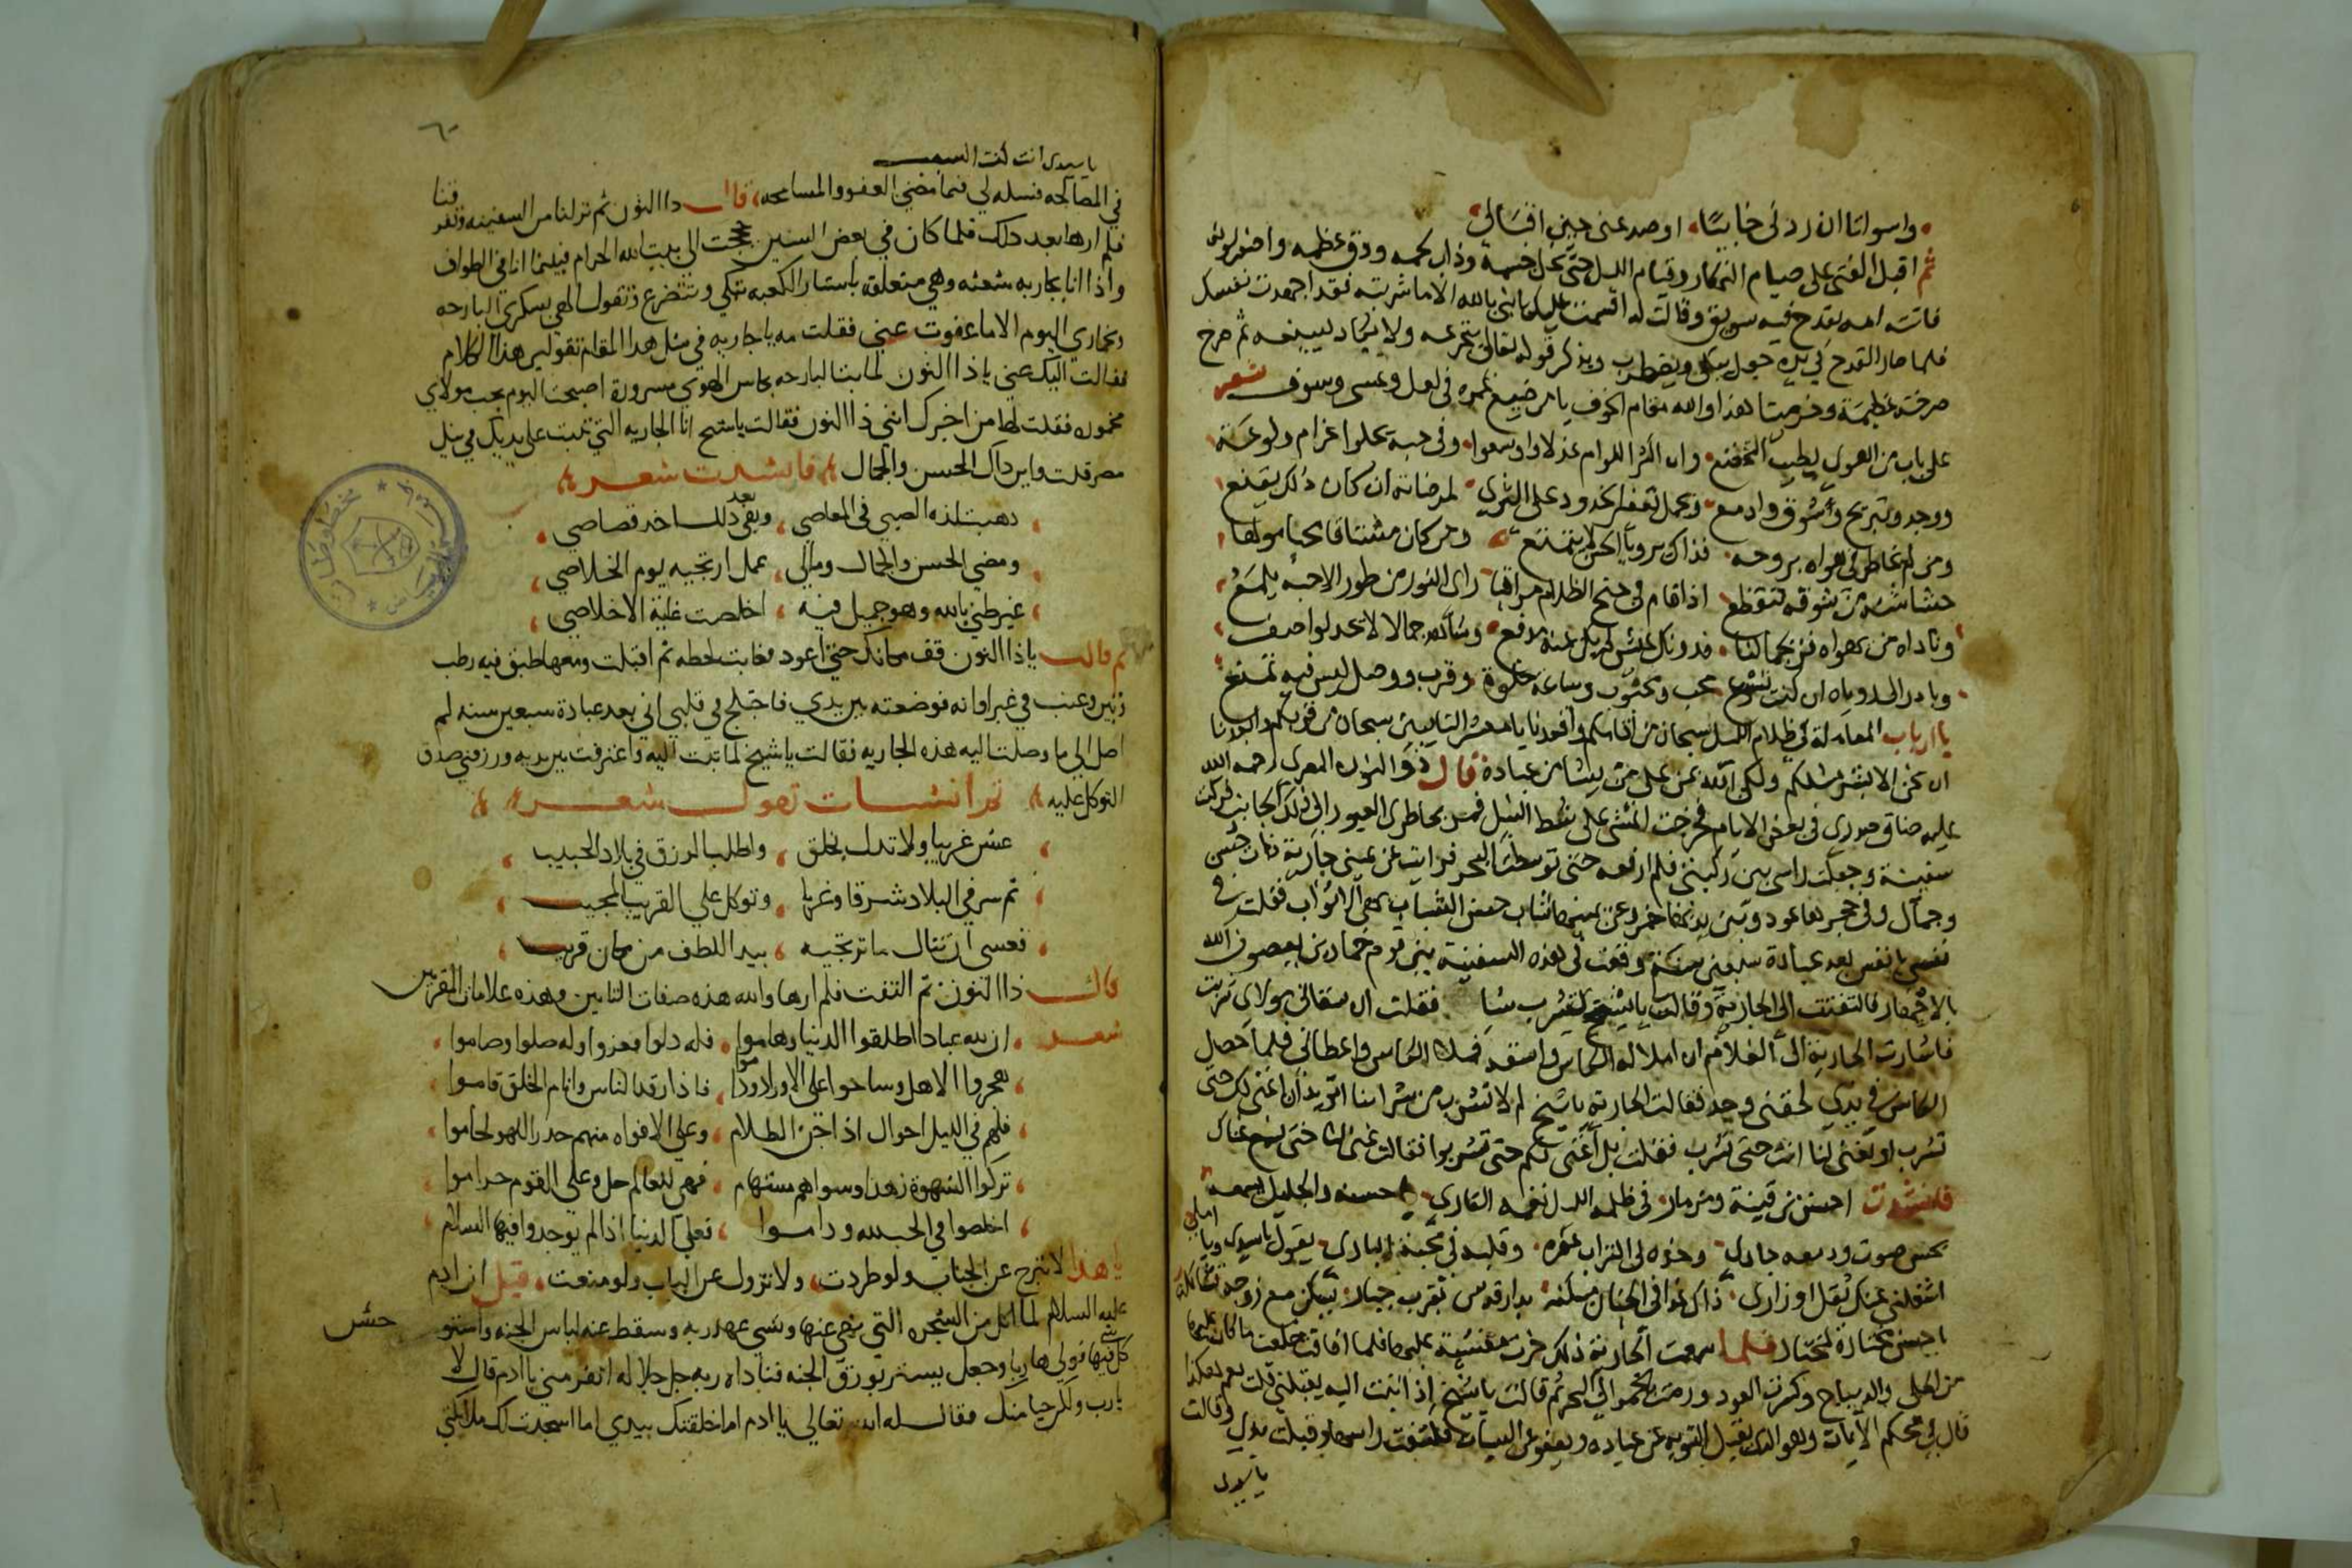 واسوأتا ان ردني خائبا اوصد عني حين اقبالي
ثم اقبل الفتى على صيام النهار وقيام الليل حتى نحل جسمه وذاب لحمه ودق عظمه واصفر لونه
فاتته امه بقدح فيه سويق وقالت له اقسمت عليك يا بني بالله الا ما شربته فقد اجهدت نفسك
فلما صار القدح في يده جعل يبكي ويضطرب ويذكر قوله تعالى يتجرعه ولا يكاد يسيغه ثم صرخ
صرخة عظيمة وخر ميتا هذا والله مقام الخوف يا من ضيع عمره في لعل وعسى وسوف شعر
على باب من اهوى يطيب التخضع وان اكثر اللوام عذلا واوسعوا وفي حبه يحلوا غرام ولوعة
ووجد وتبريح وشوق وادمع وتحمل تعفير الخدود على الثرى لمرضاته ان كان ذلك يقنع
ومن لم يخاطر في هواه بروحه فذاك لا يتمتع ومن كان مشتاقا يحب مولها
حشاشته من شوقه تتقطع اذا قام في جنح الظلام مراقبا راى النور من طور الاحبة يلمع
وناداه من يهواه فز بجمالنا فدونك وشاهد جمالا لا يحد لواصف
وبادر الدوياه ان كنت محب ومحبوب وساعة خلوة وقرب ووصل ليس فيه تمنع
يا ارباب المعاملة في ظلام الليل سبحان من اقامكم واقعدنا يا معشر التايبين سبحان من قربكم وابعدنا
ان نحن الا بشر مثلكم ولكن الله يمن على من يشا من عباده قال ذو النون المصري رحمه الله
عليه ضاق صدري في بعض الايام فخرجت اتمشى على شط النيل فمر بخاطري العبور الى ذلك الجانب فركبت
سفينة وجعلت راسي بين ركبتي فلم ارفعه حتى توسطنا البحر فرايت عن يميني جارية ذات حسن
وجمال وفي حجرها عود وبين يديها خمر وعن يمينها شاب حسن الشباب نقي الاثواب فقلت في
نفسي يا نفس بعد عبادة سبعين سنة وقعت في هذه السفينة بين قوم خمارين يعصون الله
بالاجهار فالتفتت الي الجارية وقالت يا شيخ تشرب شيا فقلت ان سقاني مولاي شربت
فاشارت الجارية الى الغلام ان املا له الكاس واسقه فملا الكاس واعطاني فلما حصل
الكاس في يدي لحقني وجد فقالت الجارية يا شيخ لم لا تشرب من شرابنا اتريد ان اغني لك حتى
تشرب او تغني لنا انت حتى نشرب فقلت بل اغني لكم حتى تشربوا فقالت غني لنا حتى نسمع غناك
فانشدت احسن من قينة ومزمار في ظلمة الليل نغمة القاري يا حسنه والجليل يسمعه
بحسن صوت ودمعه جاري وخده في التراب عفره وقلبه في محبة الباري يقول يا سيدي ويا املي
اشغلني عنك ثقل اوزاري ذاك غدا في الجنان مسكنه بدار قدس بقرب جبار يسكن مع زوجة تشاكله
يا حسن مختارة لمختار فلما سمعت الجارية ذلك خرت مغشية عليها فلما افاقت خلعت ما كان عليها
من الحلي والديباج وكسرت العود ورمت الخمر الى البحر ثم قالت يا شيخ اذا اتيت اليه يقبلني قلت نعم هكذا
قال في محكم الايات وهو الذي يقبل التوبه عن عباده ويعفو عن السيات فكشفت راسها وقبلت يدي وقالت
يا سيدي
٦٠
يا سيدي انت كنت السبب
في المصالحه فسله لي فيما مضى العفو والمسامحه قال ذا النون ثم نزلنا من السفينه وتفرقنا
فلم ارها بعد ذلك فلما كان في بعض السنين حججت الى بيت الله الحرام فبينما انا في الطواف
واذا انا بجاريه شعثه وهي متعلقه باستار الكعبه تبكي وتتضرع وتقول الهي بسكري البارحه
وخماري اليوم الا ما عفوت عني فقلت مه يا جاريه في مثل هذا المقام تقولين هذا الكلام
فقالت اليك عني يا ذا النون لما بت البارحه بكاس الهوى مسرورة اصبحت اليوم بحب مولاي
مخموره فقلت لها من اخبرك انني ذا النون فقالت يا شيخ انا الجاريه التي تابت على يديك في نيل
مصر قلت واين ذاك الحسن والجمال فانشدت شعر
ذهبت لذه الصبي في المعاصي وبقي بعد ذلك اخد قصاصي
ومضى الحسن والجمال ومالي عمل ارتجيه يوم الخلاصي
غير ظني بالله وهو جميل فيه اخلصت غاية الاخلاصي
ثم قالت يا ذا النون قف مكانك حتى اعود فغابت لحظه ثم اقبلت ومعها طبق فيه رطب
وتين وعنب في غير اوانه فوضعته بين يدي فاختلج في قلبي اني بعد عبادة سبعين سنه لم
اصل الى ما وصلت اليه هذه الجاريه فقالت يا شيخ لما تبت اليه واعترفت بين يديه ورزقني صدق
التوكل عليه ثم انشات تقول شعر
عش غريبا ولا تدل بخلق واطلب الرزق في بلاد الحبيب
ثم سر في البلاد شرقا وغربا وتوكل على القريب المجيب
فعسى ان تنال ما ترتجيه بيد اللطف من مكان قريب
قال ذا النون ثم التفت فلم ارها والله هذه صفات التايبين وهذه علامات المقربين
شعر ان لله عبادا طلقوا الدنيا وهاموا فله دلوا فعزوا وله صلوا وصاموا
هجروا الاهل وساحوا على الاوراد داموا فاذا رقد الناس وانام الخلق قاموا
فلهم في الليل احوال اذا جن الظلام وعلى الافواه منهم حذر اللهو لجاموا
تركوا الشهوة زهدا وسواهم مستهام فهي للعالم حل وعلى القوم حراموا
اخلصوا في الحب لله وداموا فعلى الدنيا اذا لم يوجدوا فيها السلام
يا هذا لا تبرح عن الجناب ولو طردت ولا تزول عن الباب ولو منعت قيل ان ادم
عليه السلام لما اكل من الشجره التي نهي عنها ونسي عهد ربه وسقط عنه لباس الجنه واستوحش
كل شي فيها فولى هاربا وجعل يستتر بورق الجنه فناداه ربه جل جلاله اتفر مني يا ادم قال لا
يا رب ولكن حيا منك فقال له الله تعالى يا ادم اما خلقتك بيدي اما اسجدت لك ملائكتي